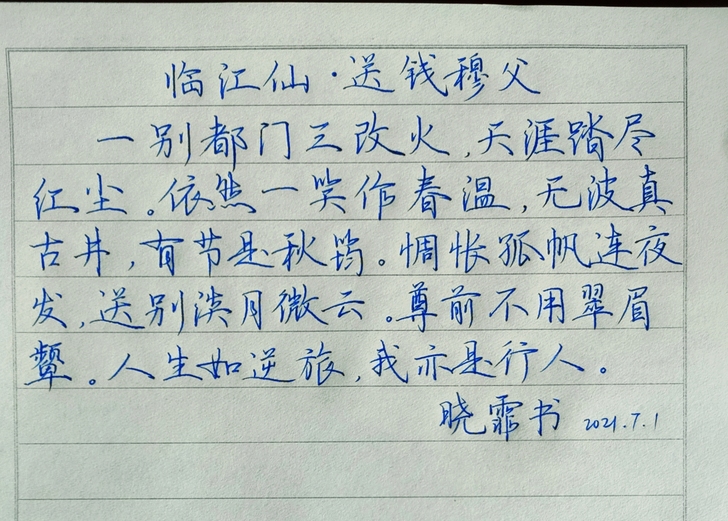 临江仙·送钱穆父
一别都门三改火,天涯踏尽
红尘。依然一笑作春温,无波真
古井,有节是秋筠。惆怅孤帆连夜
发,送别淡月微云。尊前不用翠眉
颦。人生如逆旅,我亦是行人。
晓霏书 2021.7.1